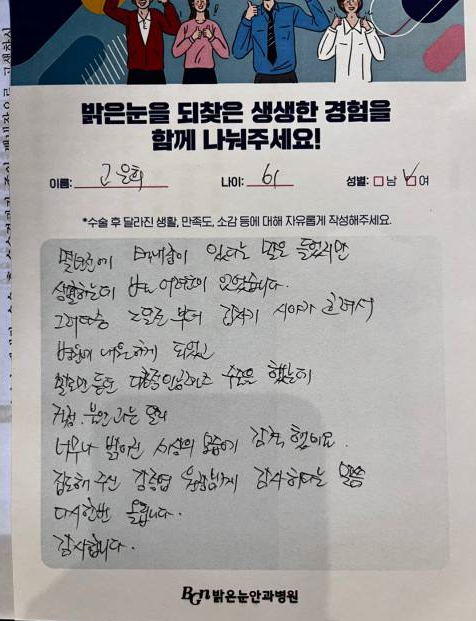 밝은눈을 되찾은 생생한 경험을
함께 나눠주세요!
이름: 고은희 나이: 61 성별: □남 □여
*수술 후 달라진 생활, 만족도, 소감 등에 대해 자유롭게 작성해주세요.
몇년전에 백내장이 있다는 말은 들었지만
생활하는데 별로 어려움이 없었습니다.
그러다가 2달쯤부터 갑자기 시야가 흐려서
병원에 내원하게 되었고
말로만 듣던 다초점인공렌즈 수술을 했는데
걱정, 불안과는 달리
너무나 밝아진 세상의 모습에 감탄했어요.
집도해 주신 원장님께 감사하다는 말씀
다시한번 올립니다.
감사합니다.
BGn 밝은눈안과병원